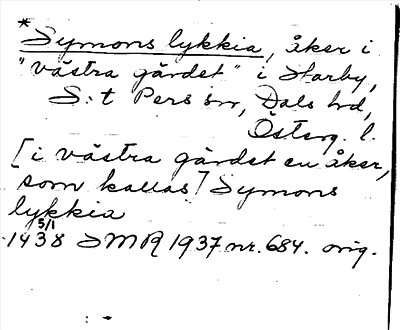 *
Symons lykkia, åker i
"västra gärdet" i Harby,
S:t Pers sn, Dals hd,
Österg. l.
[i västra gärdet en åker,
som kallas] Symons
lykkia
5/1
1438 SMR 1937 nr. 684. orig.